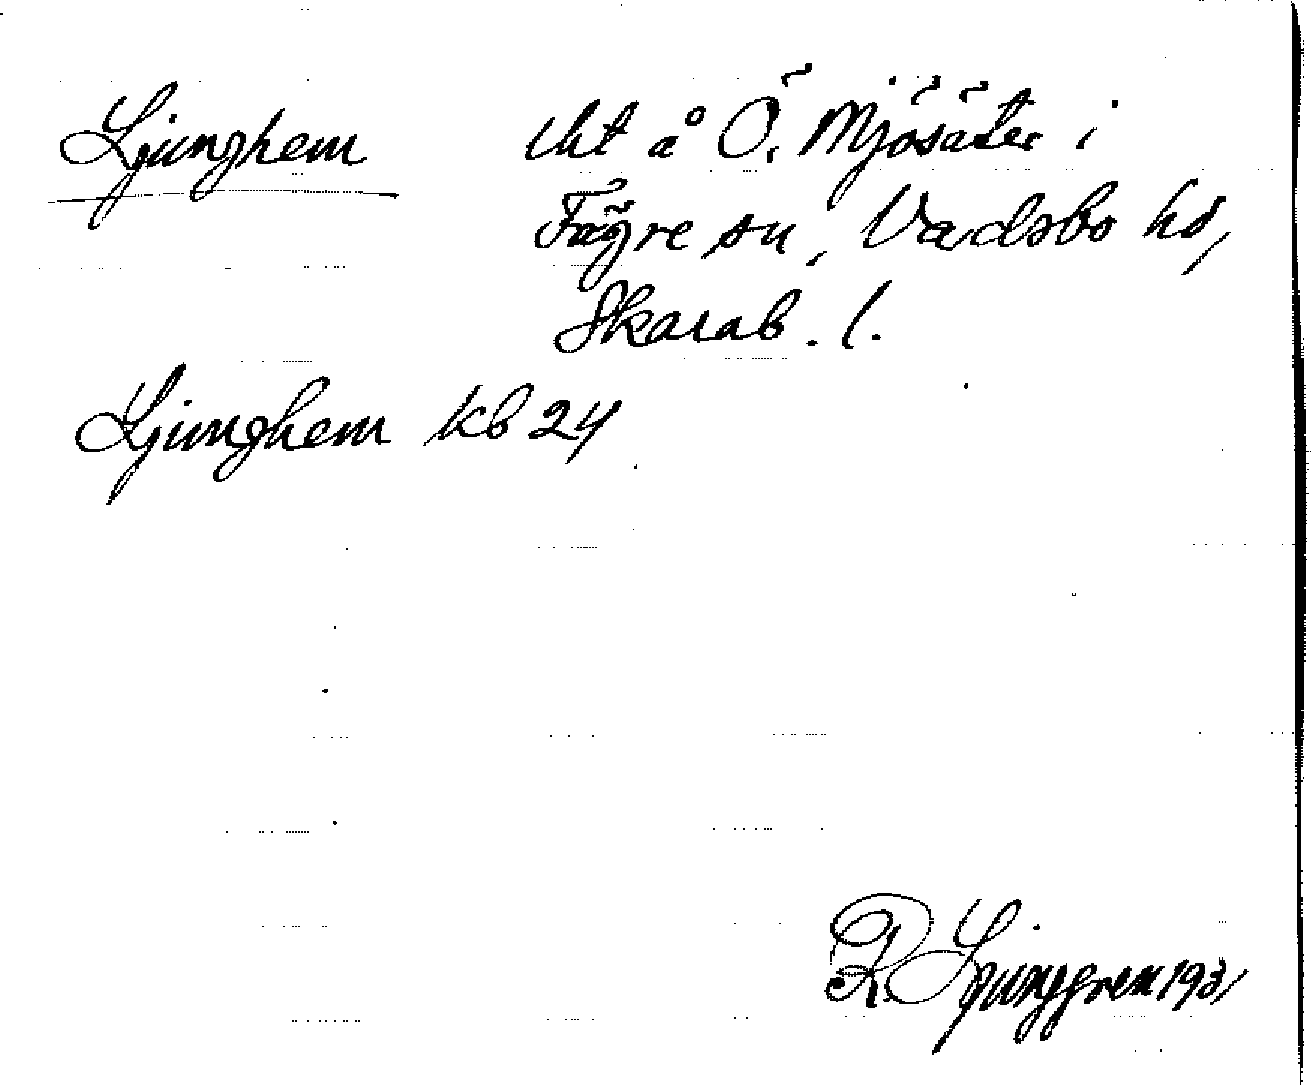 Ljunghem
tht å Ö. Mjösäter i
Fägre sn, Vadsbo hd,
Skarab. l.
Ljunghem kb 24
R Ljunggren 1931